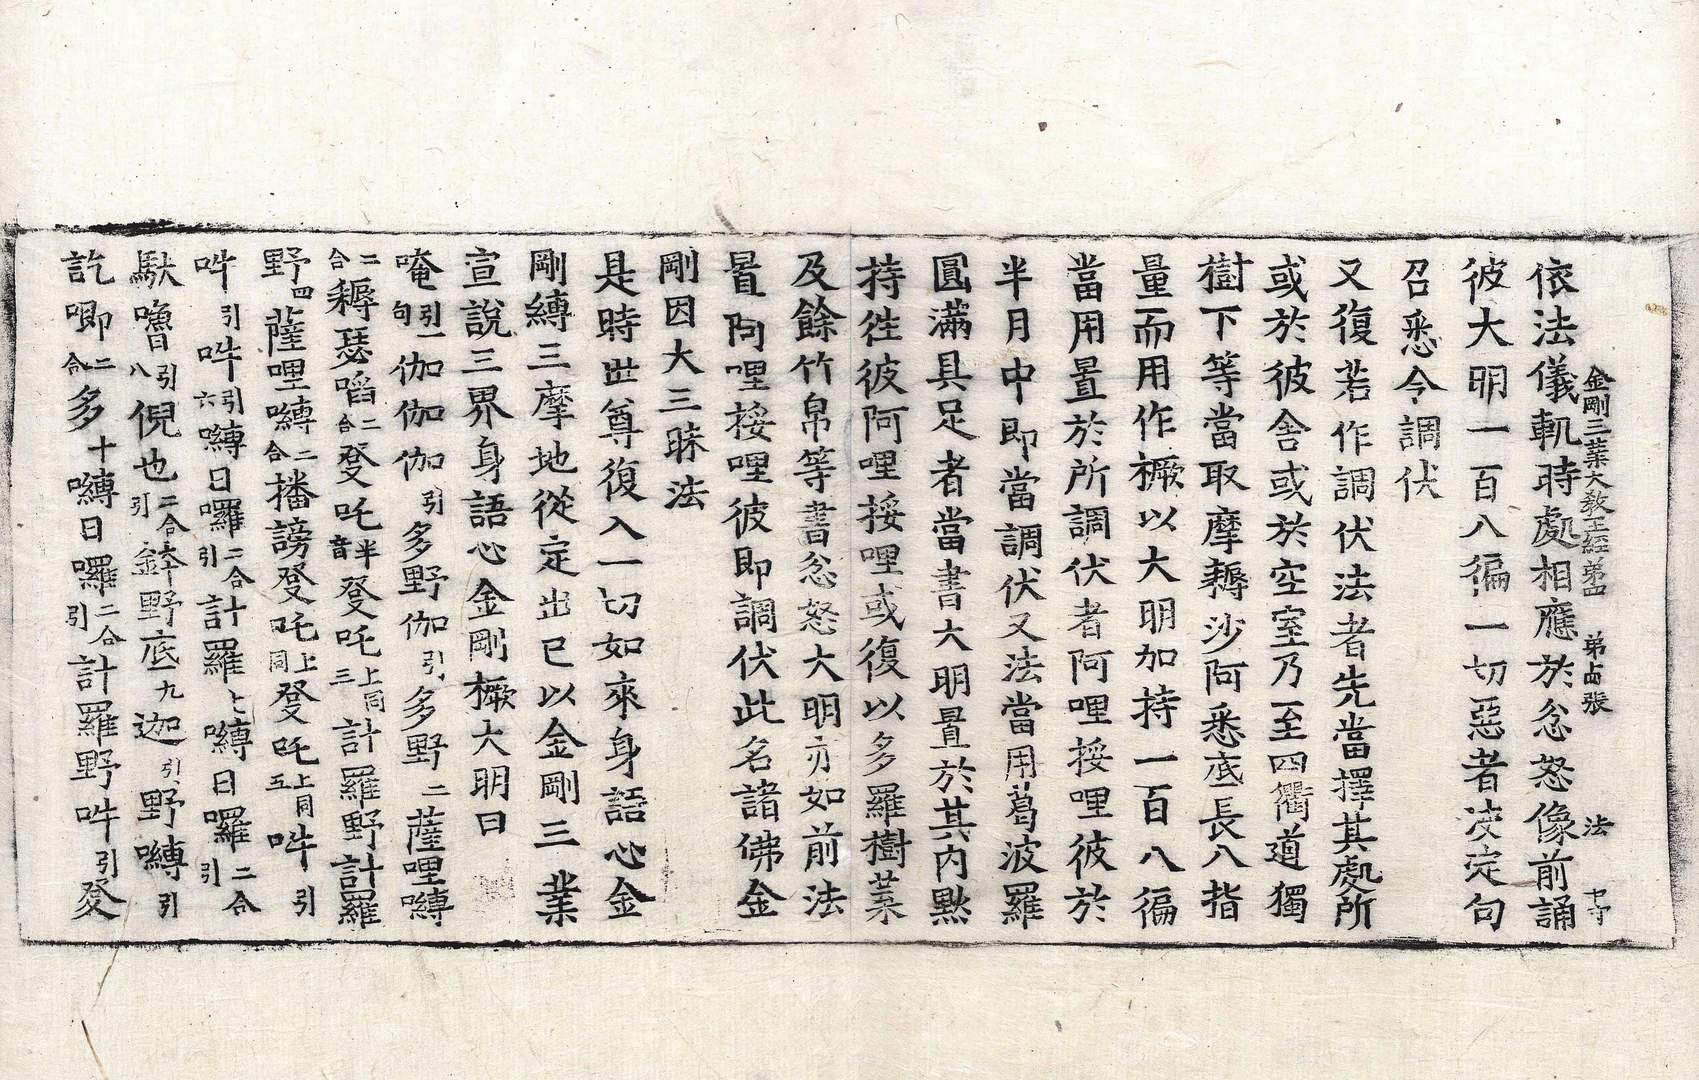 依法儀軌時處相應於忿怒像前誦
金剛三業大敎王經第四 第占張 法 十寸
彼大明一百八徧一切惡者決定句
召悉令調伏
又復若作調伏法者先當擇其處所
或於彼舍或於空室乃至四衢道獨
樹下等當取摩耨沙阿悉底長八指
量而用作橛以大明加持一百八徧
當用置於所調伏者阿哩挼哩彼於
半月中即當調伏又法當用葛波羅
圓滿具足者當書大明置於其內黙
持徃彼阿哩挼哩或復以多羅樹葉
及餘竹帛等書忿怒大明亦如前法
置阿哩挼哩彼即調伏此名諸佛金
剛因大三昧法
是時世尊復入一切如來身語心金
剛縛三摩地從定出已以金剛三業
宣說三界身語心金剛橛大明曰
唵引一句伽伽伽引多野伽引多野二薩哩嚩
二合耨瑟㗖二合登吒半音登吒上同三計羅野計羅
野四薩哩嚩二合播謗登吒上同登吒上同五吽引
吽引吽引六嚩日囉二合引計羅七嚩日囉二合引
馱嚕引八倪也二合引鉢野底九迦引野嚩引
訖唧二合多十嚩日囉二合引計羅野吽引登